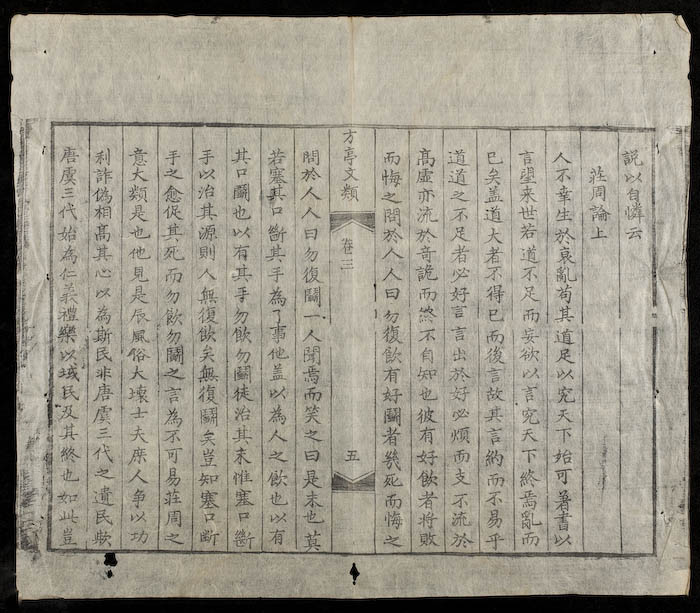 說以自憐云
莊周論上
人不幸生於衰亂苟其道足以究天下始可著書以
言望來世若道不足而妄欲以言究天下終焉亂而
已矣盖道大者不得已而後言故其言約而不易乎
道道之不足者必好言言出於好必煩而支不流於
髙虛亦流於奇詭而終不自知也彼有好飮者將敗
而悔之問於人人曰勿復飮有好鬭者幾死而悔之
方亭文類
卷三
五
問於人人曰勿復鬭一人聞焉而笑之曰是末也莫
若塞其口斷其手為了事他盖以為人之飮也以有
其口鬭也以有其手勿飮勿鬭徒治其末惟塞口斷
手以治其源則人無復飮矣無復鬭矣豈知塞口斷
手之愈促其死而勿飮勿鬭之言為不可易莊周之
意大類是也他見是辰風俗大壞士夫庶人爭以功
利詐偽相髙其心以為斯民非唐虞三代之遺民歟
唐虞三代始為仁義禮樂以域民及其終也如此豈